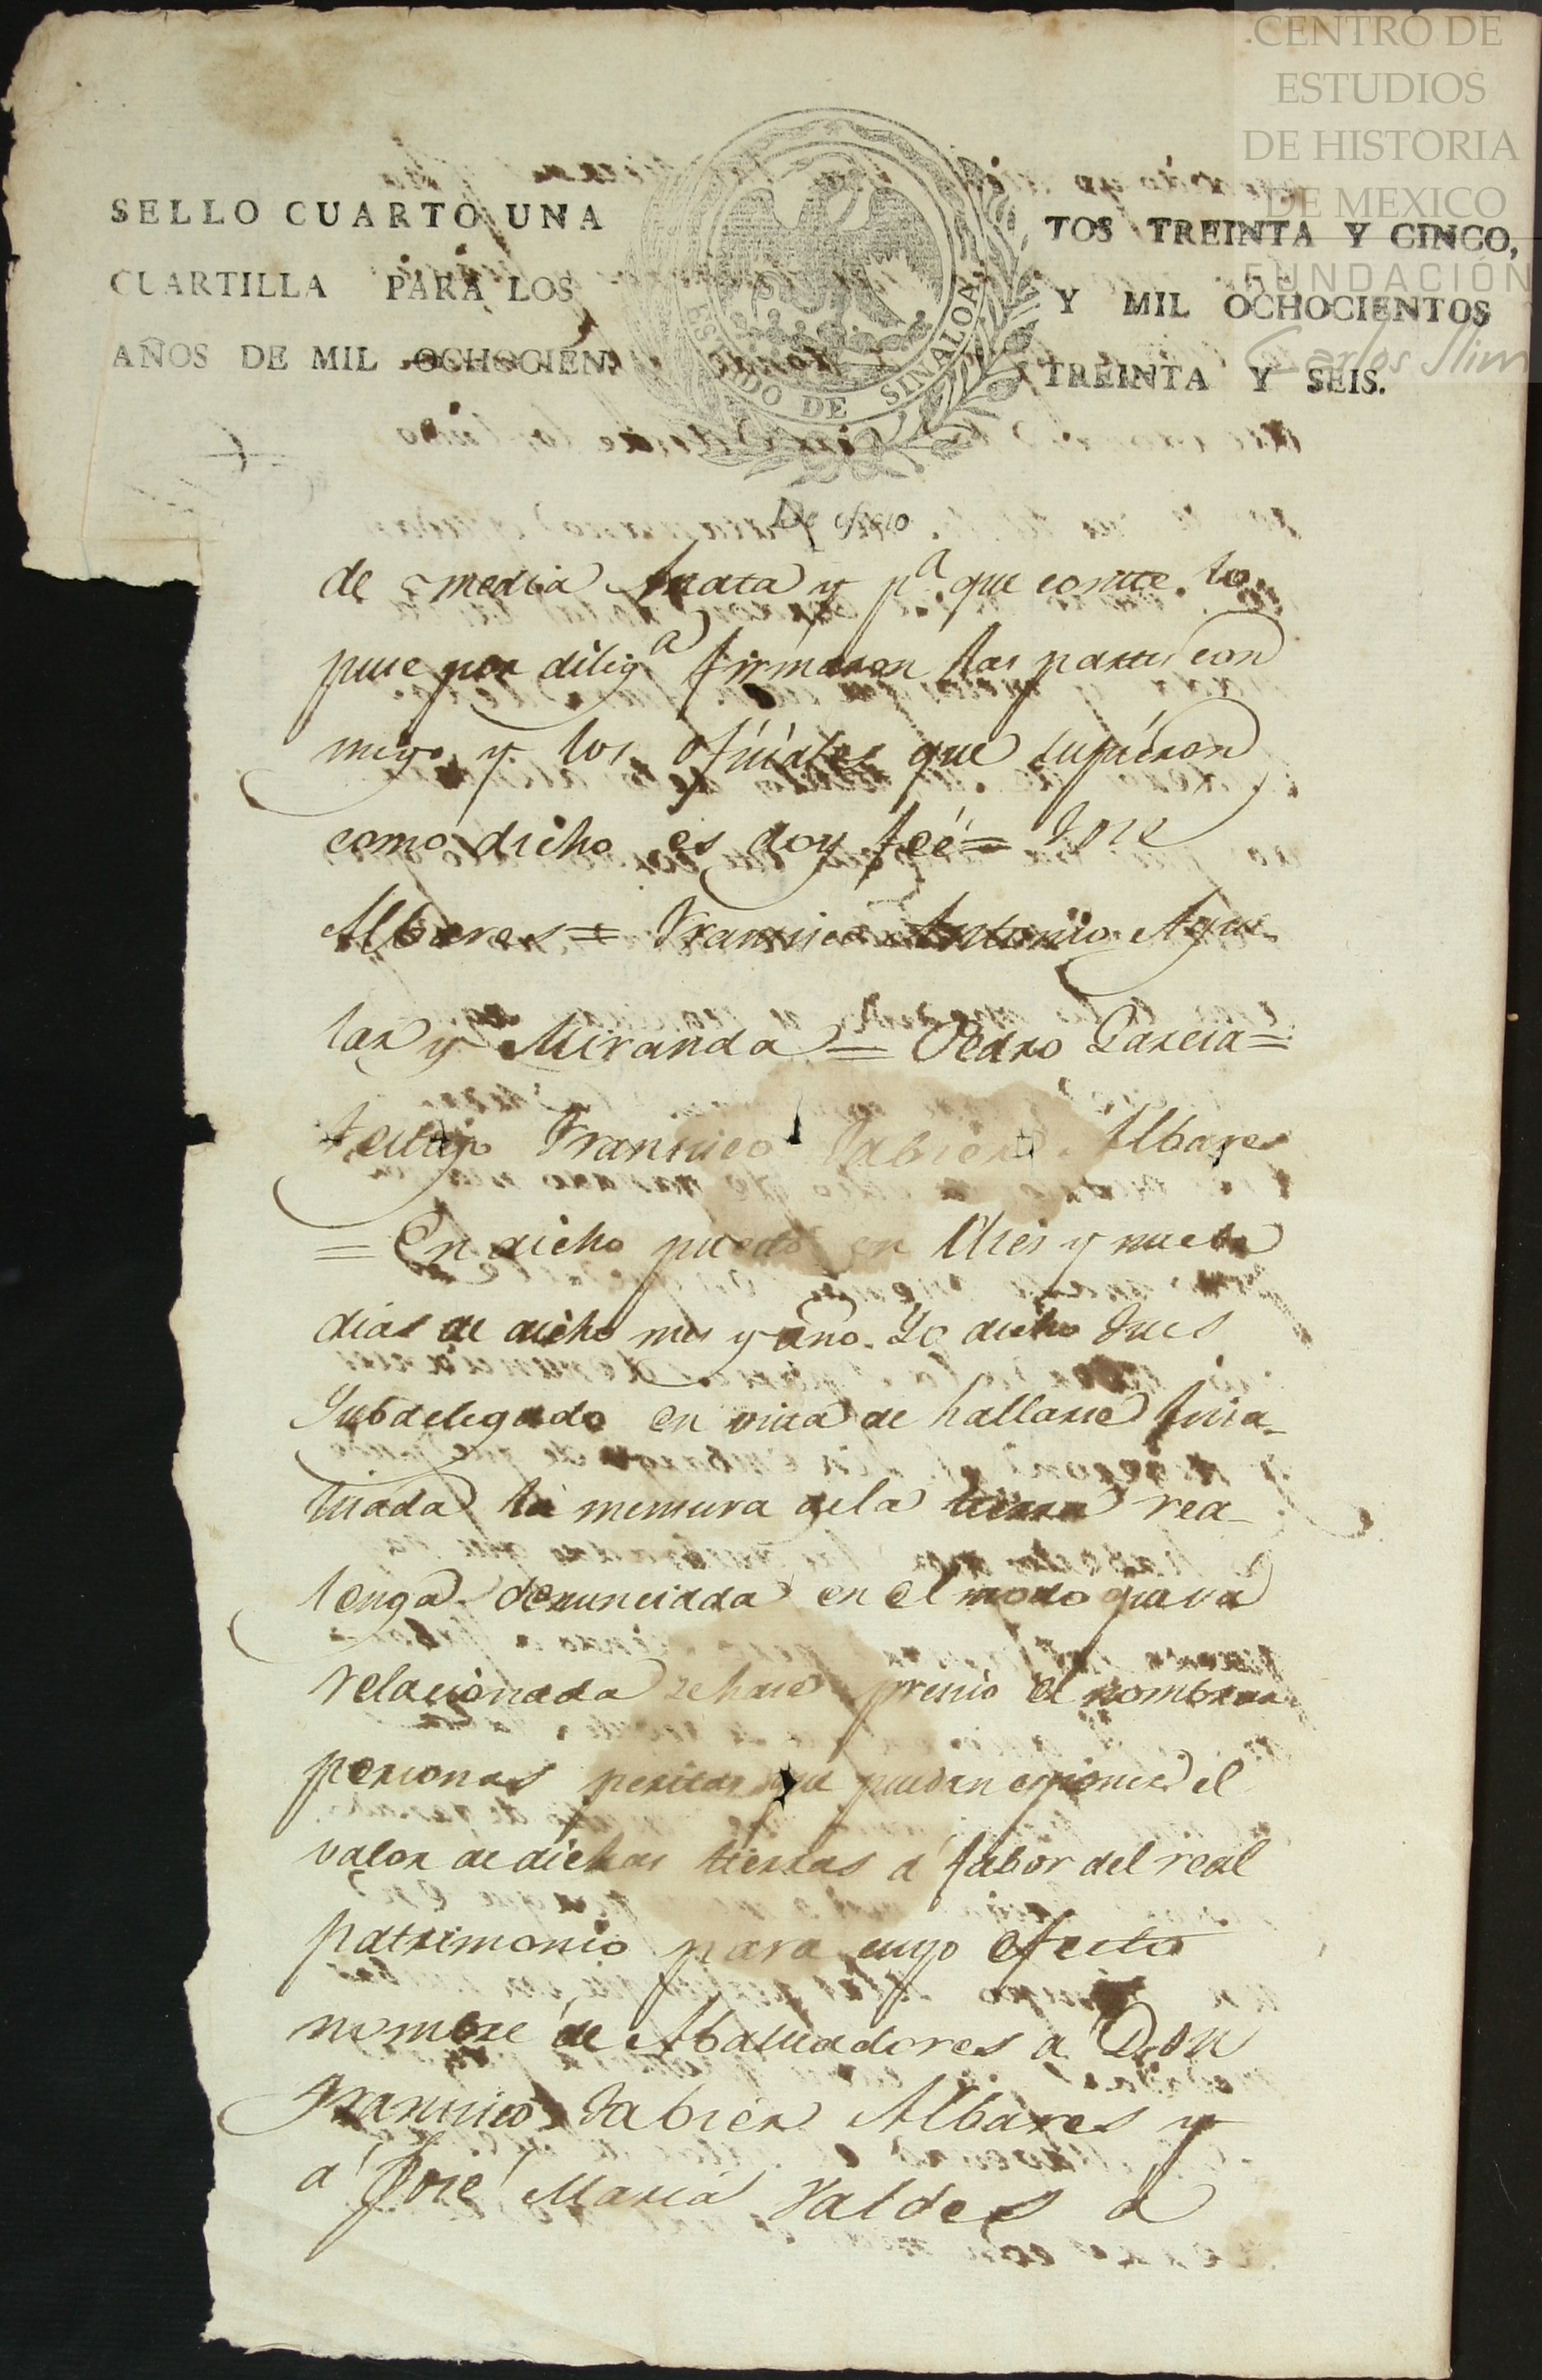 CENTRO DE
ESTUDIOS
DE HISTORIA
DE MEXICO
FUNDACIÓN
Carlos Slim
SELLO CUARTO UNA
CUARTILLA PARA LOS
AÑOS DE MIL OCHOCIEN
ESTADO DE SINALOA
TOS TREINTA Y CINCO,
Y MIL OCHOCIENTOS
TREINTA Y SEIS.
De oficio
de media Anata y pª que conste lo
puse por diligª firmaron las partes con
migo y los oficiales que supieron
como dicho es doy feé = Jose
Albares = Francisco Antonio Agui-
lar y Miranda = Pedro Garcia =
testigo Francisco Jabier Albares
= En dicho puesto en Dies y nueve
dias de dicho mes y año. Yo dicho Jues
Subdelegado en vista de hallarse finia-
tuada la mensura de la tierra rea-
lenga denunciada en el modo que va
relacionada se hase presiso el nombrar
personas peritas que puedan esponer el
valor de dichas tierras á fabor del real
patrimonio para cuyo efecto
nombre de Abaluadores a Don
Francisco Jabier Albares y
a José Maria Valdes a